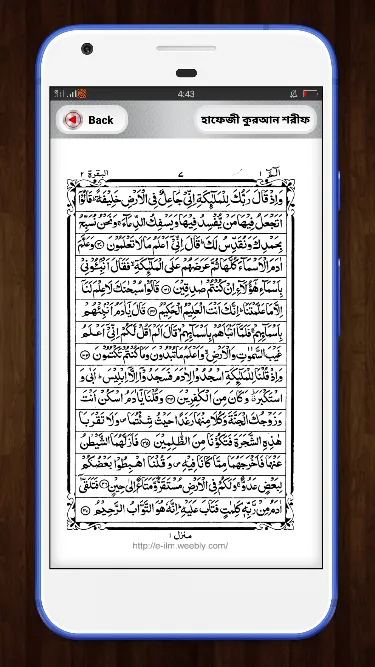 4:43
Back
হাফেজী কুরআন শরীফ
البقرة ٢
٧
الٓمّٓ ١
وَاِذْ قَالَ رَبُّكَ لِلْمَلٰٓئِكَةِ اِنِّیْ جَاعِلٌ فِی الْاَرْضِ خَلِیْفَةً ؕ قَالُوْۤا
اَتَجْعَلُ فِیْهَا مَنْ یُّفْسِدُ فِیْهَا وَیَسْفِكُ الدِّمَآءَ ۚ وَنَحْنُ نُسَبِّحُ
بِحَمْدِكَ وَنُقَدِّسُ لَكَ ؕ قَالَ اِنِّیْۤ اَعْلَمُ مَا لَا تَعْلَمُوْنَ ﴿۳۰﴾ وَعَلَّمَ
اٰدَمَ الْاَسْمَآءَ كُلَّهَا ثُمَّ عَرَضَهُمْ عَلَی الْمَلٰٓئِكَةِ ۙ فَقَالَ اَنْۢبِـُٔوْنِیْ
بِاَسْمَآءِ هٰۤؤُلَآءِ اِنْ كُنْتُمْ صٰدِقِیْنَ ﴿۳۱﴾ قَالُوْا سُبْحٰنَكَ لَا عِلْمَ لَنَاۤ
اِلَّا مَا عَلَّمْتَنَا ؕ اِنَّكَ اَنْتَ الْعَلِیْمُ الْحَكِیْمُ ﴿۳۲﴾ قَالَ یٰۤاٰدَمُ اَنْۢبِئْهُمْ
بِاَسْمَآئِهِمْ ۚ فَلَمَّاۤ اَنْۢبَاَهُمْ بِاَسْمَآئِهِمْ ۙ قَالَ اَلَمْ اَقُلْ لَّكُمْ اِنِّیْۤ اَعْلَمُ
غَیْبَ السَّمٰوٰتِ وَالْاَرْضِ ۙ وَاَعْلَمُ مَا تُبْدُوْنَ وَمَا كُنْتُمْ تَكْتُمُوْنَ ﴿۳۳﴾
وَاِذْ قُلْنَا لِلْمَلٰٓئِكَةِ اسْجُدُوْا لِاٰدَمَ فَسَجَدُوْۤا اِلَّاۤ اِبْلِیْسَ ؕ اَبٰی وَ
اسْتَكْبَرَ ۗ وَكَانَ مِنَ الْكٰفِرِیْنَ ﴿۳۴﴾ وَقُلْنَا یٰۤاٰدَمُ اسْكُنْ اَنْتَ
وَزَوْجُكَ الْجَنَّةَ وَكُلَا مِنْهَا رَغَدًا حَیْثُ شِئْتُمَا ۪ وَلَا تَقْرَبَا
هٰذِهِ الشَّجَرَةَ فَتَكُوْنَا مِنَ الظّٰلِمِیْنَ ﴿۳۵﴾ فَاَزَلَّهُمَا الشَّیْطٰنُ
عَنْهَا فَاَخْرَجَهُمَا مِمَّا كَانَا فِیْهِ ۪ وَقُلْنَا اهْبِطُوْا بَعْضُكُمْ
لِبَعْضٍ عَدُوٌّ ۚ وَلَكُمْ فِی الْاَرْضِ مُسْتَقَرٌّ وَّمَتَاعٌ اِلٰی حِیْنٍ ﴿۳۶﴾ فَتَلَقّٰۤی
اٰدَمُ مِنْ رَّبِّهٖ كَلِمٰتٍ فَتَابَ عَلَیْهِ ؕ اِنَّهٗ هُوَ التَّوَّابُ الرَّحِیْمُ ﴿۳۷﴾
منزل ١
http://e-ilm.weebly.com/